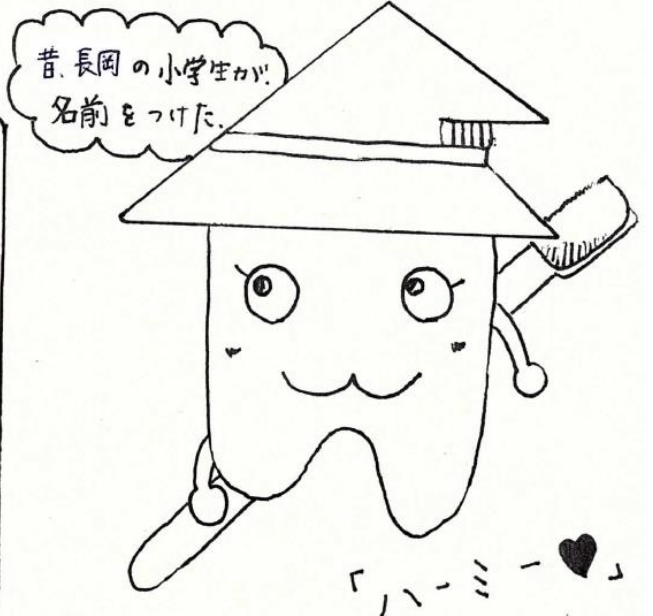 昔、長岡の小学生が、
名前をつけた。
「ハーミー♥」